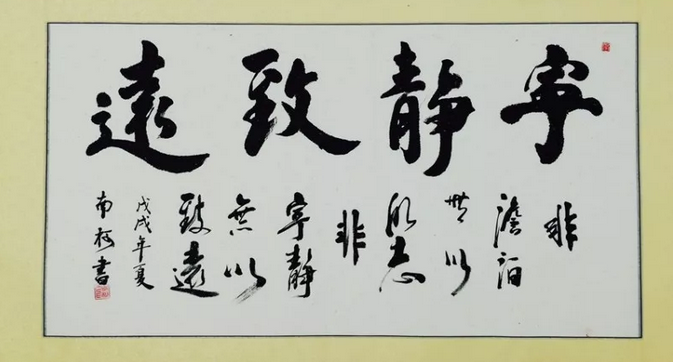 寧靜致遠
非
澹泊
無以
明志
非
寧靜
無以
致遠
戊戌年夏
南柯書